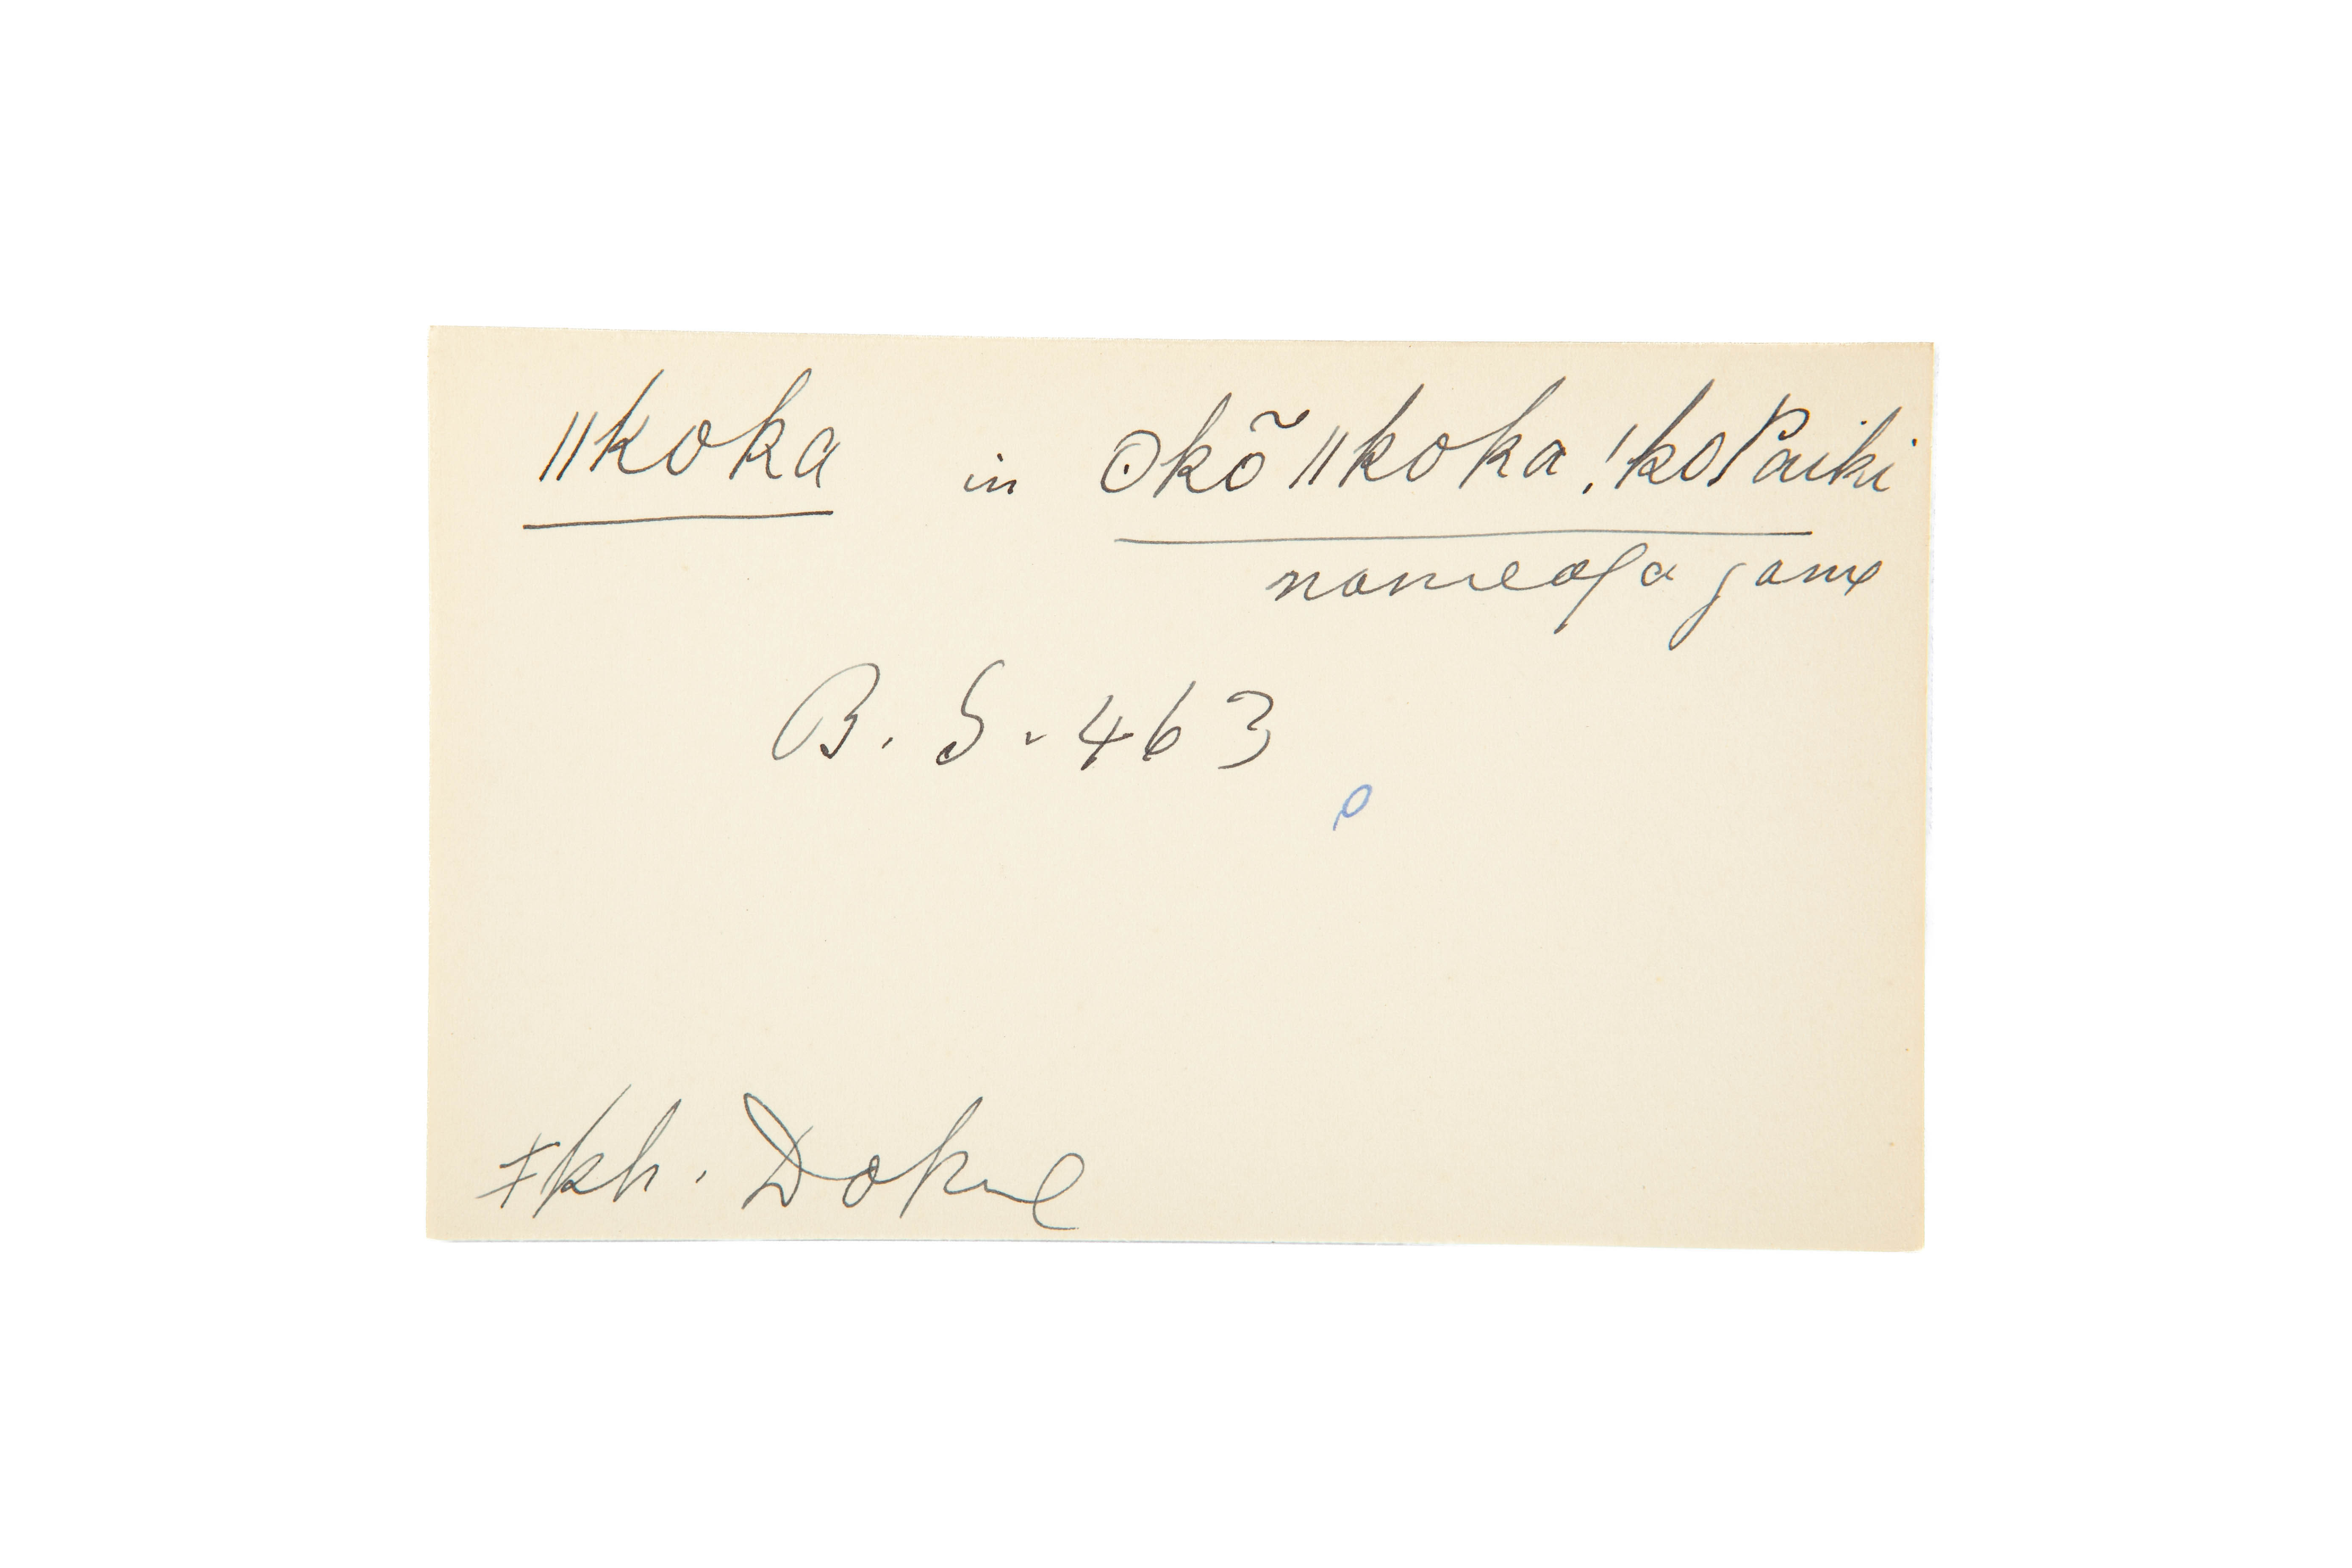 ǁkoka in ʘkõ ǁkoka !koʔaiki
name of a game
B. S. 463
ǂkh. Doke